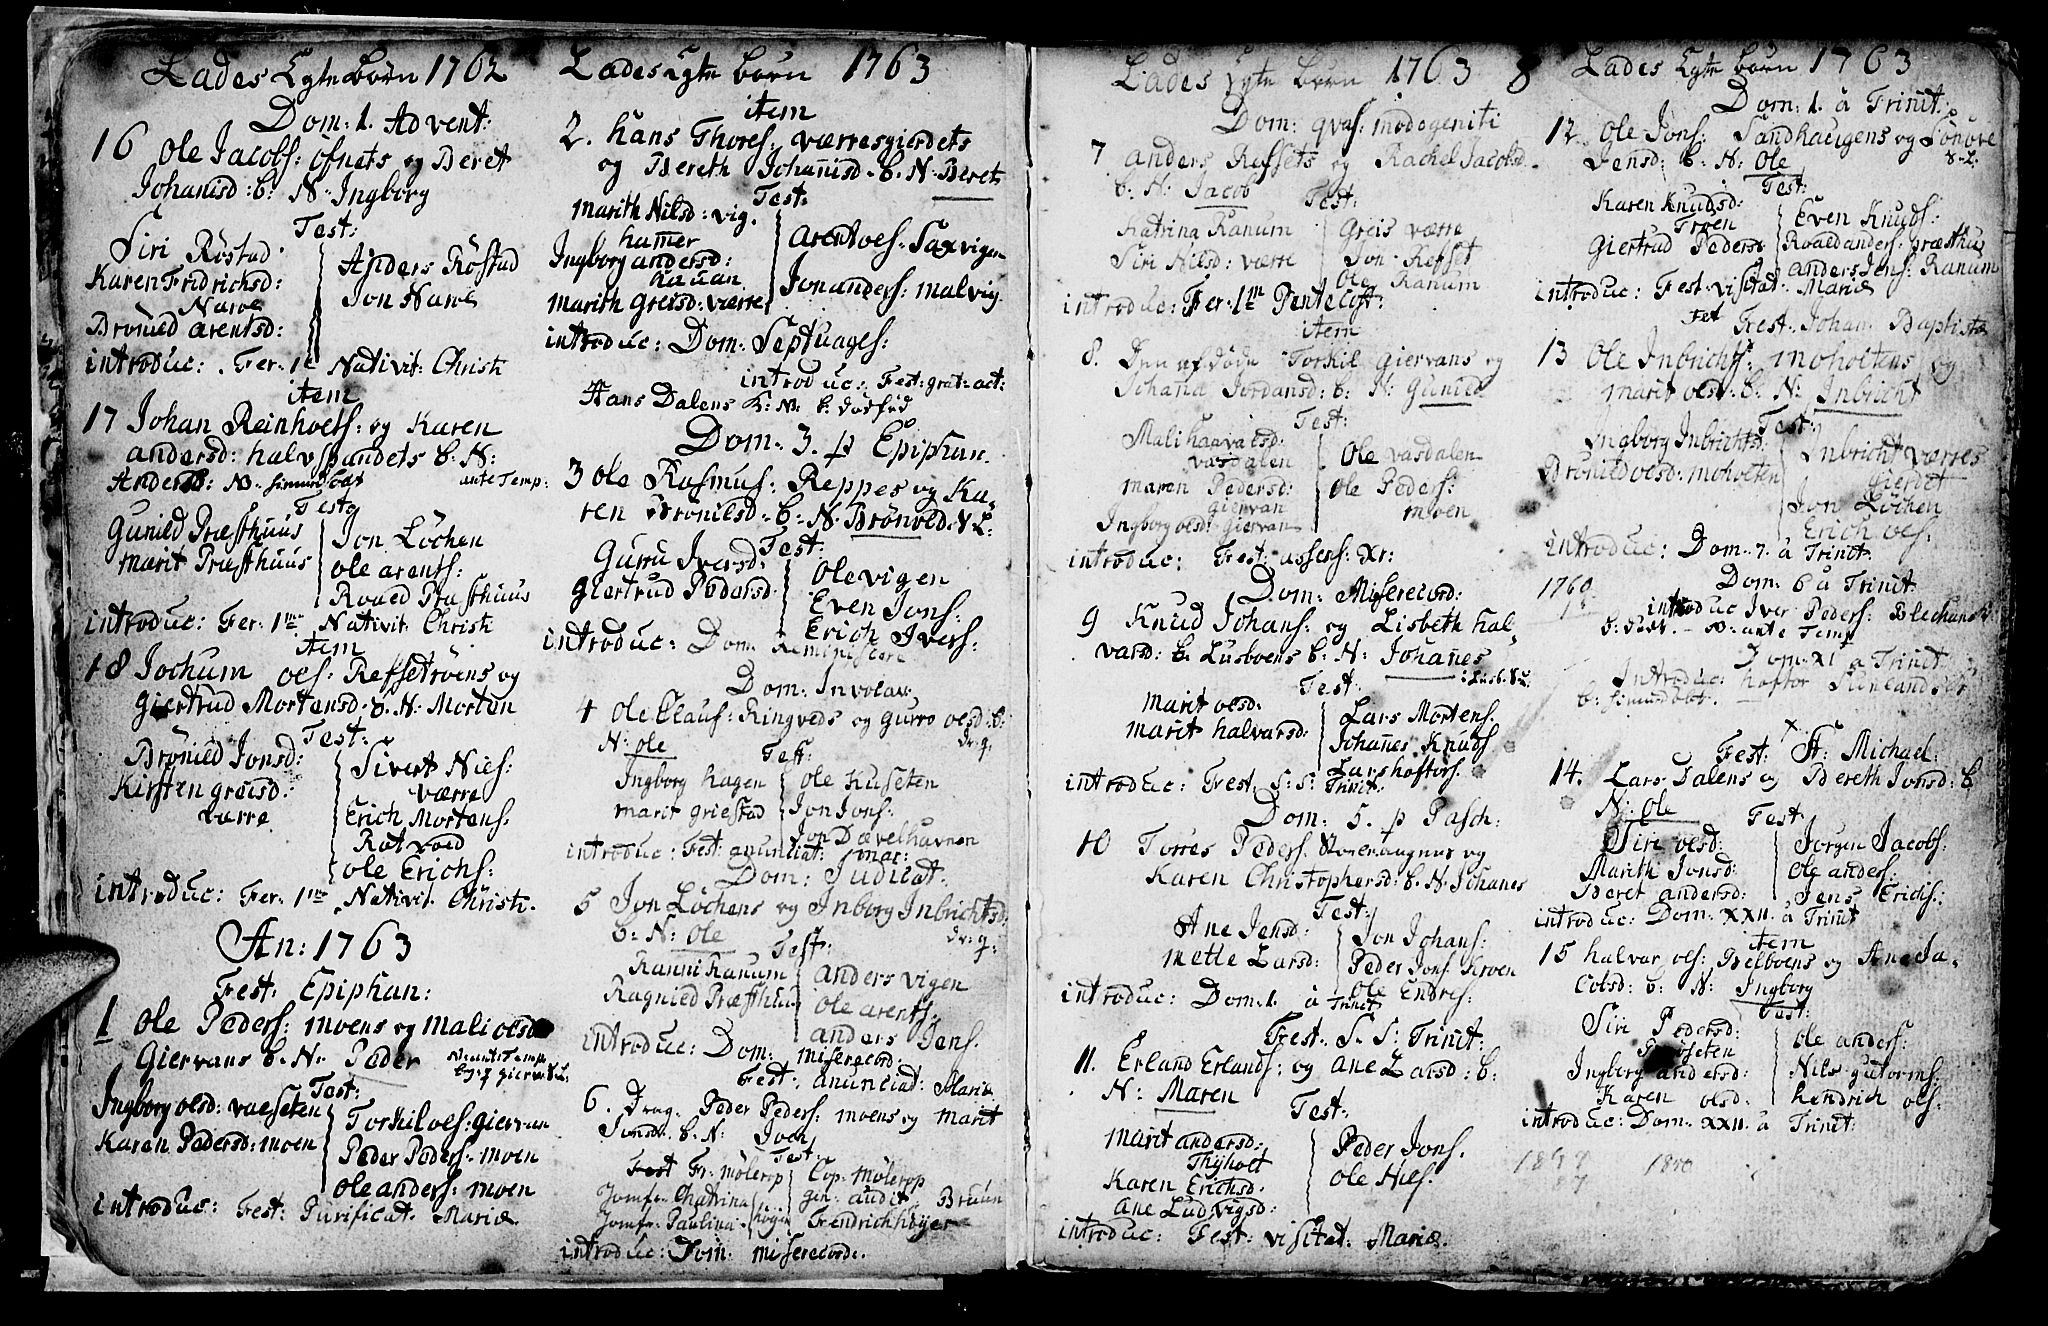 Lades Egte børn 1762
Dom: 1. Advent:
16 Ole Jacobs: Ofnets og Beret
Johanisd: b: N: Ingborg
Test:
Siri Røstad
Karen Fridrichsd:
Narve
Brønild arentsd:
Anders Røstad
Jon Narve
introduc: Fer: 1e Nativit: Christi
item
17 Johan Reinholts: og Karen
andersd: halvspandets b: N:
Anders: N: ante Temp:
Test
Gunild Præsthuus
marit Præsthuus
Jon Løchen
ole arents:
Roald Præsthuus
introduc: Fer: 1me Nativit: Christi
item
18 Jochum ols: Refsetrøens og
Giertrud Mortensd: b: N: Morten
Test:
Brønild Jonsd:
Kirsten greisd:
værre
Sivert Niels:
værre
Erich Mortens:
Ratvold
ole Erichs:
introduc: Fer: 1me Nativit: Christi.
An: 1763
Fest: Epiphan:
1 Ole Peders: moens og Mali olsd
Giervans b: N: Peder
Test:
Ingborg olsd:
Karen Pedersd: moen
Torkil ols: giervan
Peder Peders: moen
ole anders: moen
introduc: Fest: Purificat: Mariæ
Lades Egte børn 1763
item
2. hans Thores: værresgierdets
og Bereth Johannisd: b: N: Beret
Test:
marith Nilsd: vig.
hammer
Ingborg andersd:
hauan
marith Greisd: værre
Arent ols: Saxvigen
Jon anders: malvig
introduc: Dom: Septuages:
introduc: Fest: grat: act:
Hans Dalens K: N: b: dødfød
Dom: 3. p Epiphan.
3 Ole Rasmus: Reppes og Ka-
ren Brønilsd: b: N: Brønild
Test:
Guru Iversd:
Giertrud Pedersd:
Ole vigen
Even Jons:
Erich Ivers:
introduc: Dom: Reminiscere
Dom: Invocav:
4 Ole Claus: Ringveds og Gurro olsd: b:
N: ole
Test:
Ingborg hagen
marit griestad
Ole Kuseten
Jon Jons:
Jon Dævelhavnen
introduc: Fest: anunciat: mar:
Dom: Judicat:
5 Jon Løchens og Inborg Inbrichtsd:
b: N: Ole
Test:
Ranni Ranum
Ragnild Præsthuus
anders vigen
ole arents:
anders Jens.
introduc: Dom: misericord:
Fest: anunciat: Mariæ
6. Drag: Peder Peders: moens og marit
Jonsd: b: N: Joen
Test:
Fr: mølerop
Jomfr: Chatrina
Jomfr: Paulina
Cap: mølerop
gen: audit: Bruun
Fendrich høyer
introduc: Dom: misericord:
Lades Egte børn 1763 8
Dom: qvas: modogeniti
7 anders Refsets og Rachel Jacobsd.
b: N: Jacob
Test:
Katrina Ranum
Siri Nilsd: værre
Greis værre
Jon Refset
Ole Ranum
introduc: Fer: 1m Pentecost:
item
8. Torkil giervans og
Johana Jordansd: b: N: Gunild
Test:
Mali haavalsd:
vasdalen
maren Pedersd:
giervan
Ingborg olsd: giervan
Ole vasdalen
Ole Peders:
moen
introduc: Fest: assens: Xr:
Dom: Misericord:
9 Knud Johans: og Lisbeth hal-
varsd: Lusboens b: N: Johanes
Test:
marit olsd:
marit halvarsd:
Lars Mortens.
Johannes Knuds
Lars hoftors:
introduc: Fest: S: S: Trinit:
Dom: 5. p Pasch:
10 Torres Peders: og
Karen Christophersd: b: N: Johanes
Test:
Ane Jensd:
mette Larsd:
Jon Johans:
Peder Jons: Kroen
Ole Endres:
introduc: Dom: 1. à Trinit
Fest: S. S: Trinit:
11. Erland Erlands: og Ane Larsd: b:
N: Maren
Test:
marit andersd:
Thyholt
Karen Erichsd:
Ane Ludvigsd:
Peder Jons.
Ole Niels.
introduc: Fest: visitat: Mariæ.
Lades Egte børn 1763
Dom: 1. à Trinit:
12. Ole Jons: Sandhaugens og
Jensd: b: N: Ole
Test:
Karen Knudsd:
Trøen
Giertrud Pedersd:
Even Knuds:
Roald anders: præsthuus
anders Jens: Ranum
introduc: Fest: visitat: Mariæ
Fest: Johan: Baptistæ
13 Ole Inbrichts: moholtens og
marit olsd: b: N: Inbricht
Test:
Ingborg Inbrichts:
Brønild olsd: moholten
Inbricht værres
gierdet
Jon Løchen
Erich ols:
introduc: Dom: 7. à Trinit.
1760
Dom: 6 à Trinit:
introduc Iver Peders:
N: ante Temp
Dom: XI à Trinit
Introduc: hoftor
Fest: St: Michael:
14. Lars Dalens og Bereth Jonsd: b
N: Ole
Test:
Siri olsd:
Marith Jonsd:
Beret andersd:
Jørgen Jacobs:
Ole anders:
Jens Erichs:
introduc: Dom: XXII. à Trinit
item
15 halvar ols: Belboens og Ane Ja-
cobsd: b: N: Ingborg
Test:
Siri Pedersd:
Ingborg andersd:
Karen olsd:
ole anders:
Nils gutorms:
hendrich ols:
introduc: Dom: XXII. à Trinit: